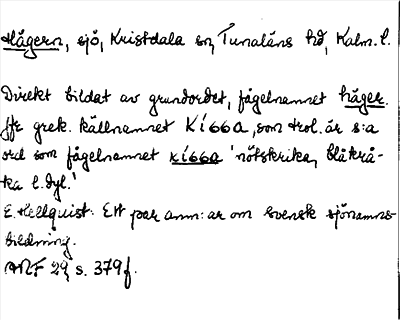 Hågern, sjö, Kristdala sn, Tunaläns hd, Kalm. l.
Direkt bildat av grundordet, fågelnamnet häger.
Jfr grek. källnamnet Κίσσα, som trol. är s:a
ord som fågelnamnet κίσσα 'nötskrika, blåkrå-
ka l. dyl.'
E. Hellquist: Ett par anm:ar om svensk sjönamns-
bildning.
ANF 29, s. 379 f.